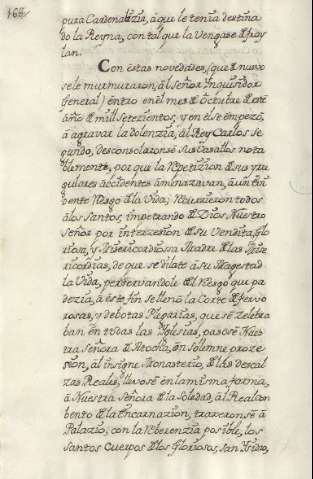 168
pura Cardenalizia, à que le tenia destina
do la Reyna, con tal que la Vengase
lan.
Con estas novedades, (que nuevo
se le murmuraron, àl Señor Inquisidor
General) entro en el mes Octubre
año mill setezientos, y en èl se empezò,
à agravar la dolenzia, àl Rey Carlos Se
gundo, desconsolaronse sus Vasallos nota
blemente, por que la Repetizion su
gulares accidentes aminazavan, à un
dente Riesgo la Vida; Recurrieron todos
à los Santos, impetrando Dios, Nuestro
Señor por interzesion su Vendita, Glo
riosa, y Misericordiosa Madre las Mise
ricordias, de que se dilate à su Magestad
la Vida, perservandole Riesgo que pa
dezia, à este fin se llenò la Corte fervo
rosas, y debotas Plegarias, que se zelebra
ban en todas las Yglesias, pasose Nues
tra Señora Atocha, en Sollemne proze
sion, àl insigne Monasterio, las descal
zas Reales, llevose en la misma forma,
à Nuestra Señora la Soledad, àl Real con
bento la Encarnazion, traxeronse à
Palazio, con la Reberenzia posible, los
Santos Cuerpos los Gloriosos, San Isidro,